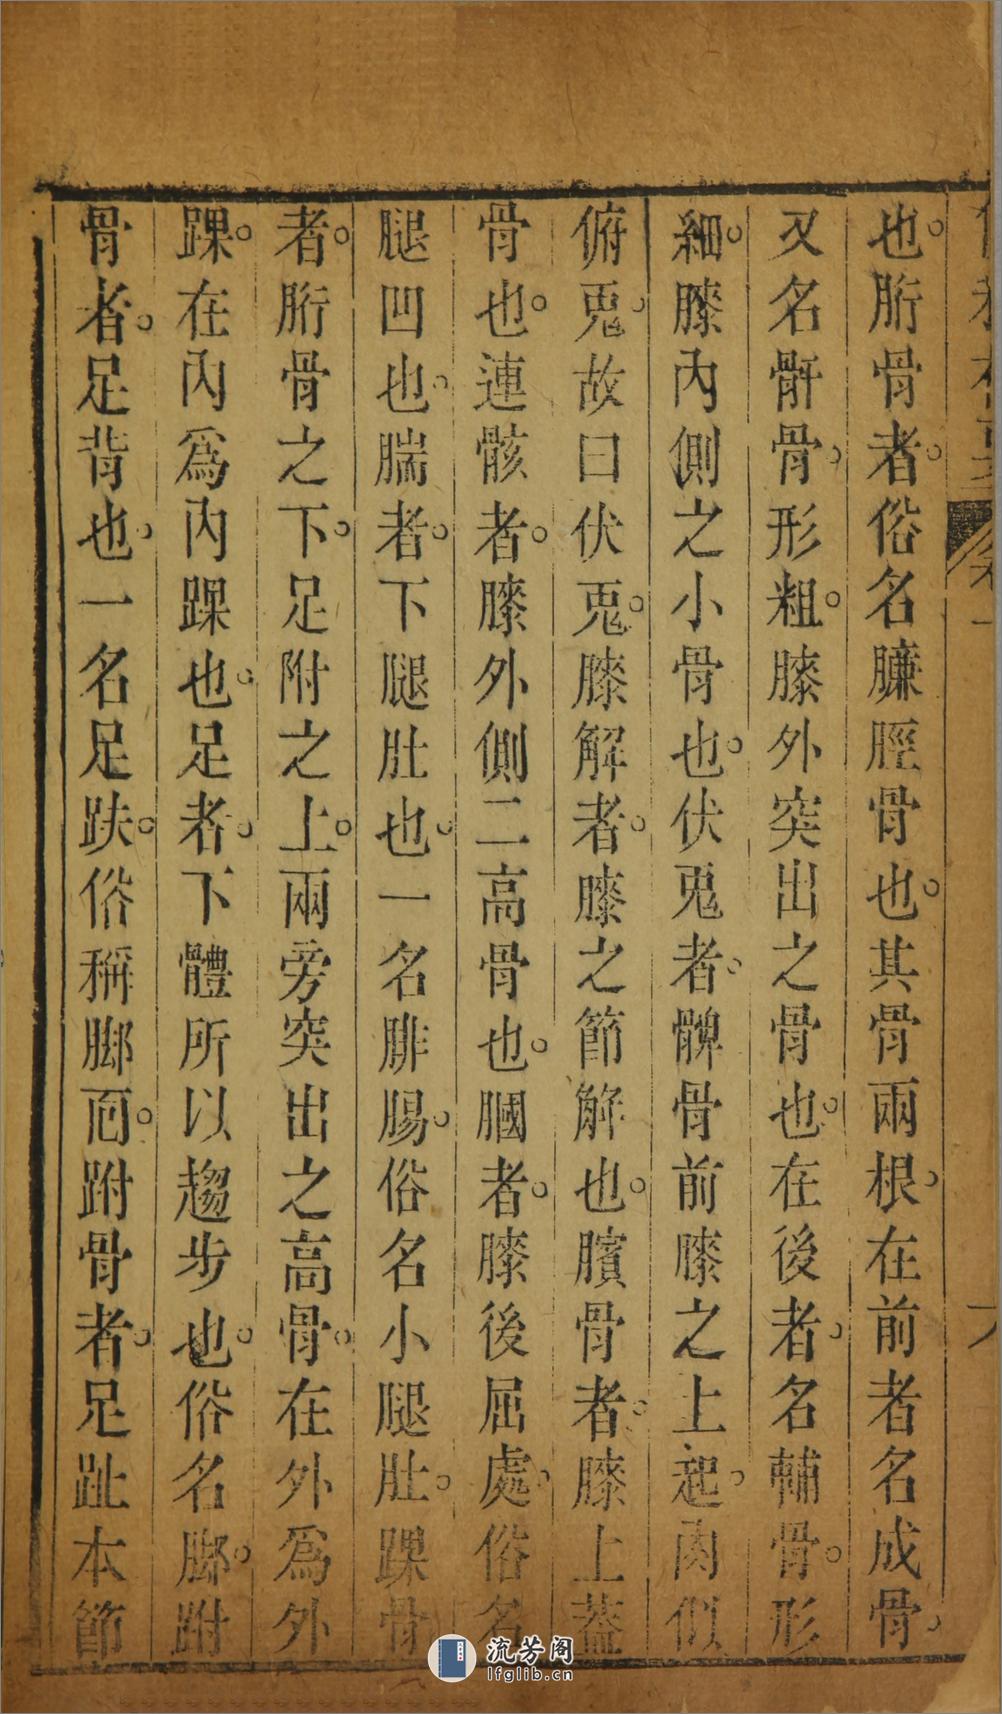 也。胻骨者。俗名臁脛骨也。其骨兩根。在前者名成骨。
又名骭骨。形粗。膝外突出之骨也。在後者。名輔骨。形
細。膝內側之小骨也。伏兎者。髀骨前膝之上起。肉似
俯兎。故曰伏兎。膝解者。膝之節解也。臏骨者。膝上蓋
骨也。連骸者。膝外側二高骨也。膕者。膝後屈處。俗名
腿凹也。腨者。下腿肚也。一名腓腸。俗名小腿肚。踝骨
者。胻骨之下。足附之上。兩旁突出之高骨。在外爲外
踝。在內爲內踝也。足者。下體所以趨步也。俗名脚。跗
骨者。足背也。一名足趺。俗稱脚面。跗骨者。足趾本節
流芳阁
lfglib.cn